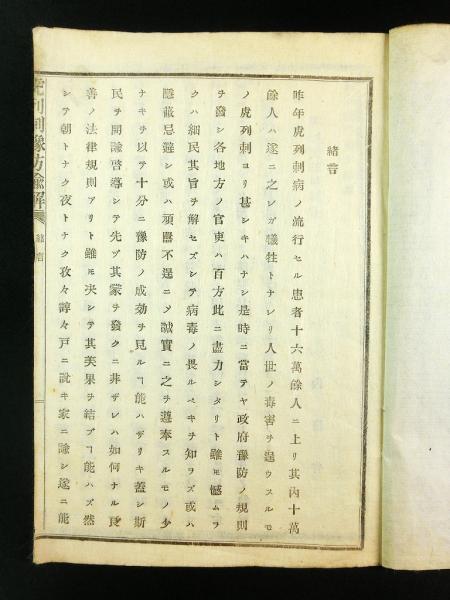 緒言
昨年虎列刺病ノ流行セル患者十六萬餘人ニ上リ其內十萬
餘人ハ遂ニ之レガ犠牲トナレリ人世ノ毒害ヲ逞ウスルモ
ノ虎列刺ヨリ甚シキハナシ是時ニ當テヤ政府豫防ノ規則
ヲ發シ各地方ノ官吏ハ百方此ニ盡力シタリト雖モ憾ムラ
クハ細民其旨ヲ解セズシテ病毒ノ畏ルベキヲ知ラズ或ハ
隱蔽忌避シ或ハ頑囂不逞ニメ誠實ニ之ヲ遵奉スルモノ少
ナキヲ以テ十分ニ豫防ノ成効ヲ見ルヿ能ハザリキ蓋シ斯
民ヲ開諭啓導シテ先ヅ其蒙ヲ發クニ非ザレハ如何ナル良
善ノ法律規則アリト雖モ决シテ其美果ヲ結ブヿ能ハズ然
シテ朝トナク夜トナク孜々諄々戸ニ說キ家ニ諭シ遂ニ能
虎列剌豫防諭解 緒言